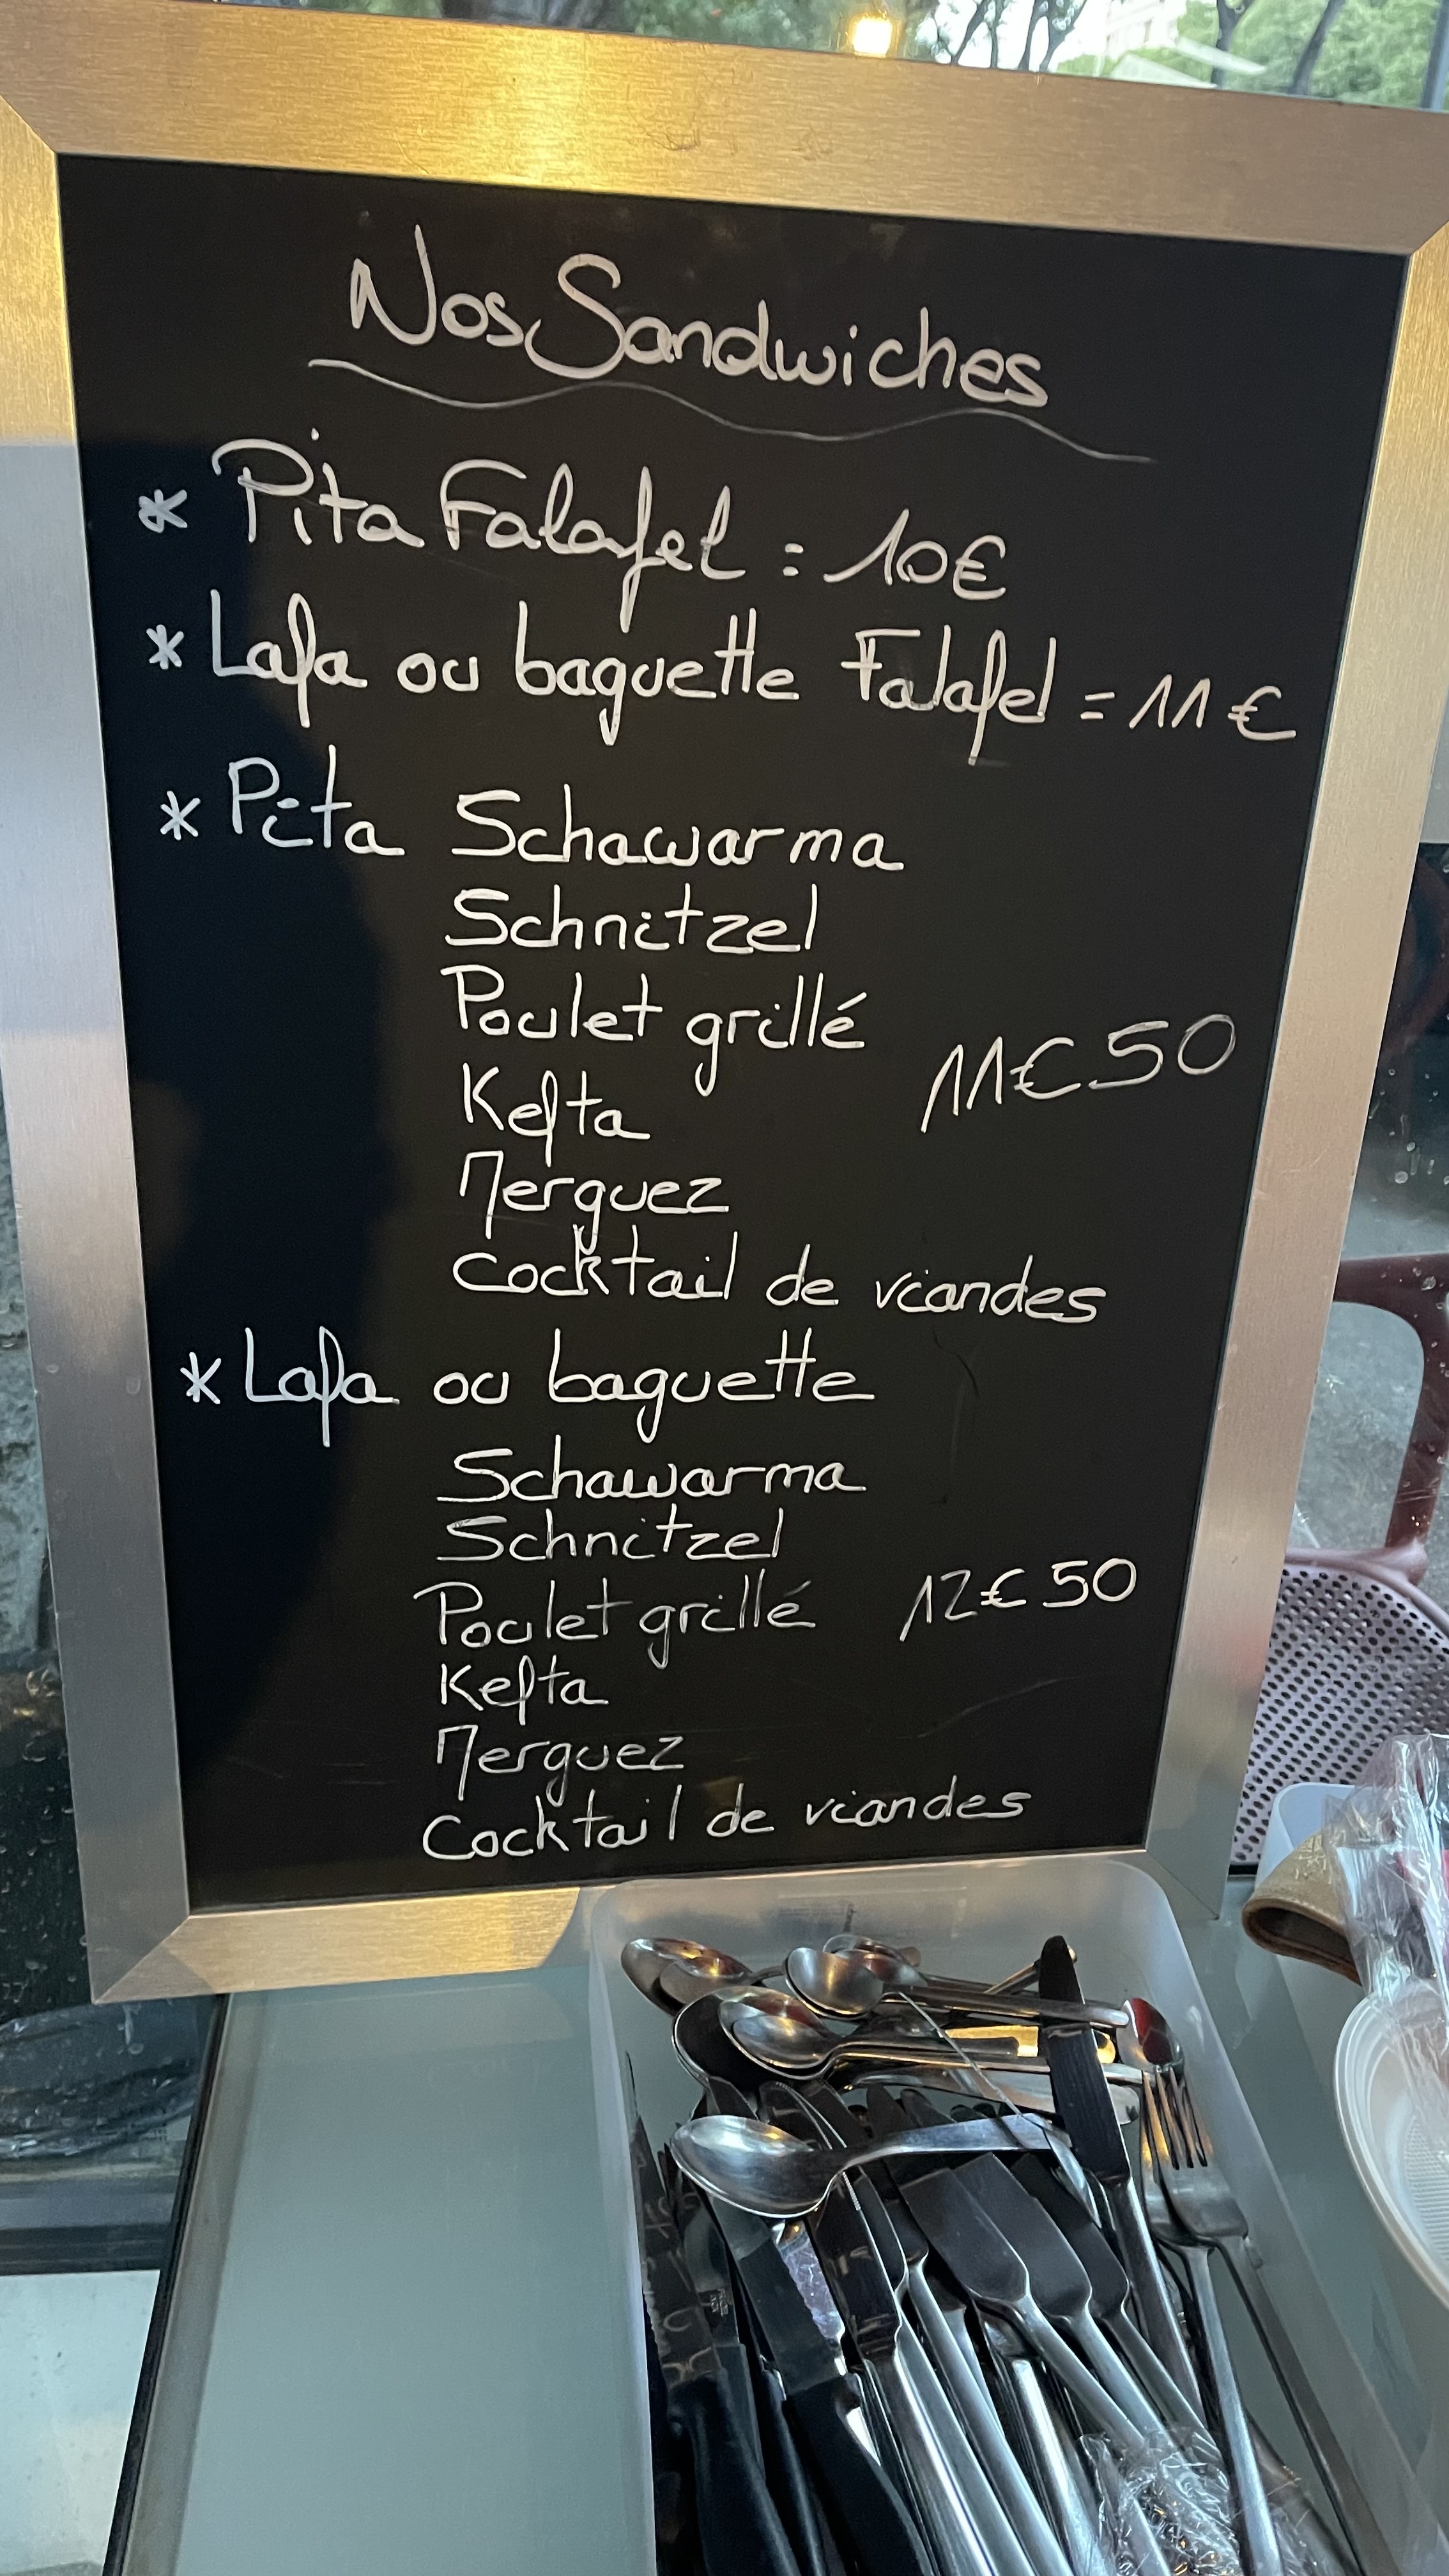 Nos Sandwiches
* Pita Falafel : 10€
* Lafa ou baguette Falafel = 11€
* Pita Schawarma
Schnitzel
Poulet grillé
11€50
Kefta
Merguez
Cocktail de viandes
* Lafa ou baguette
Schawarma
Schnitzel
Poulet grillé 12€50
Kefta
Merguez
Cocktail de viandes